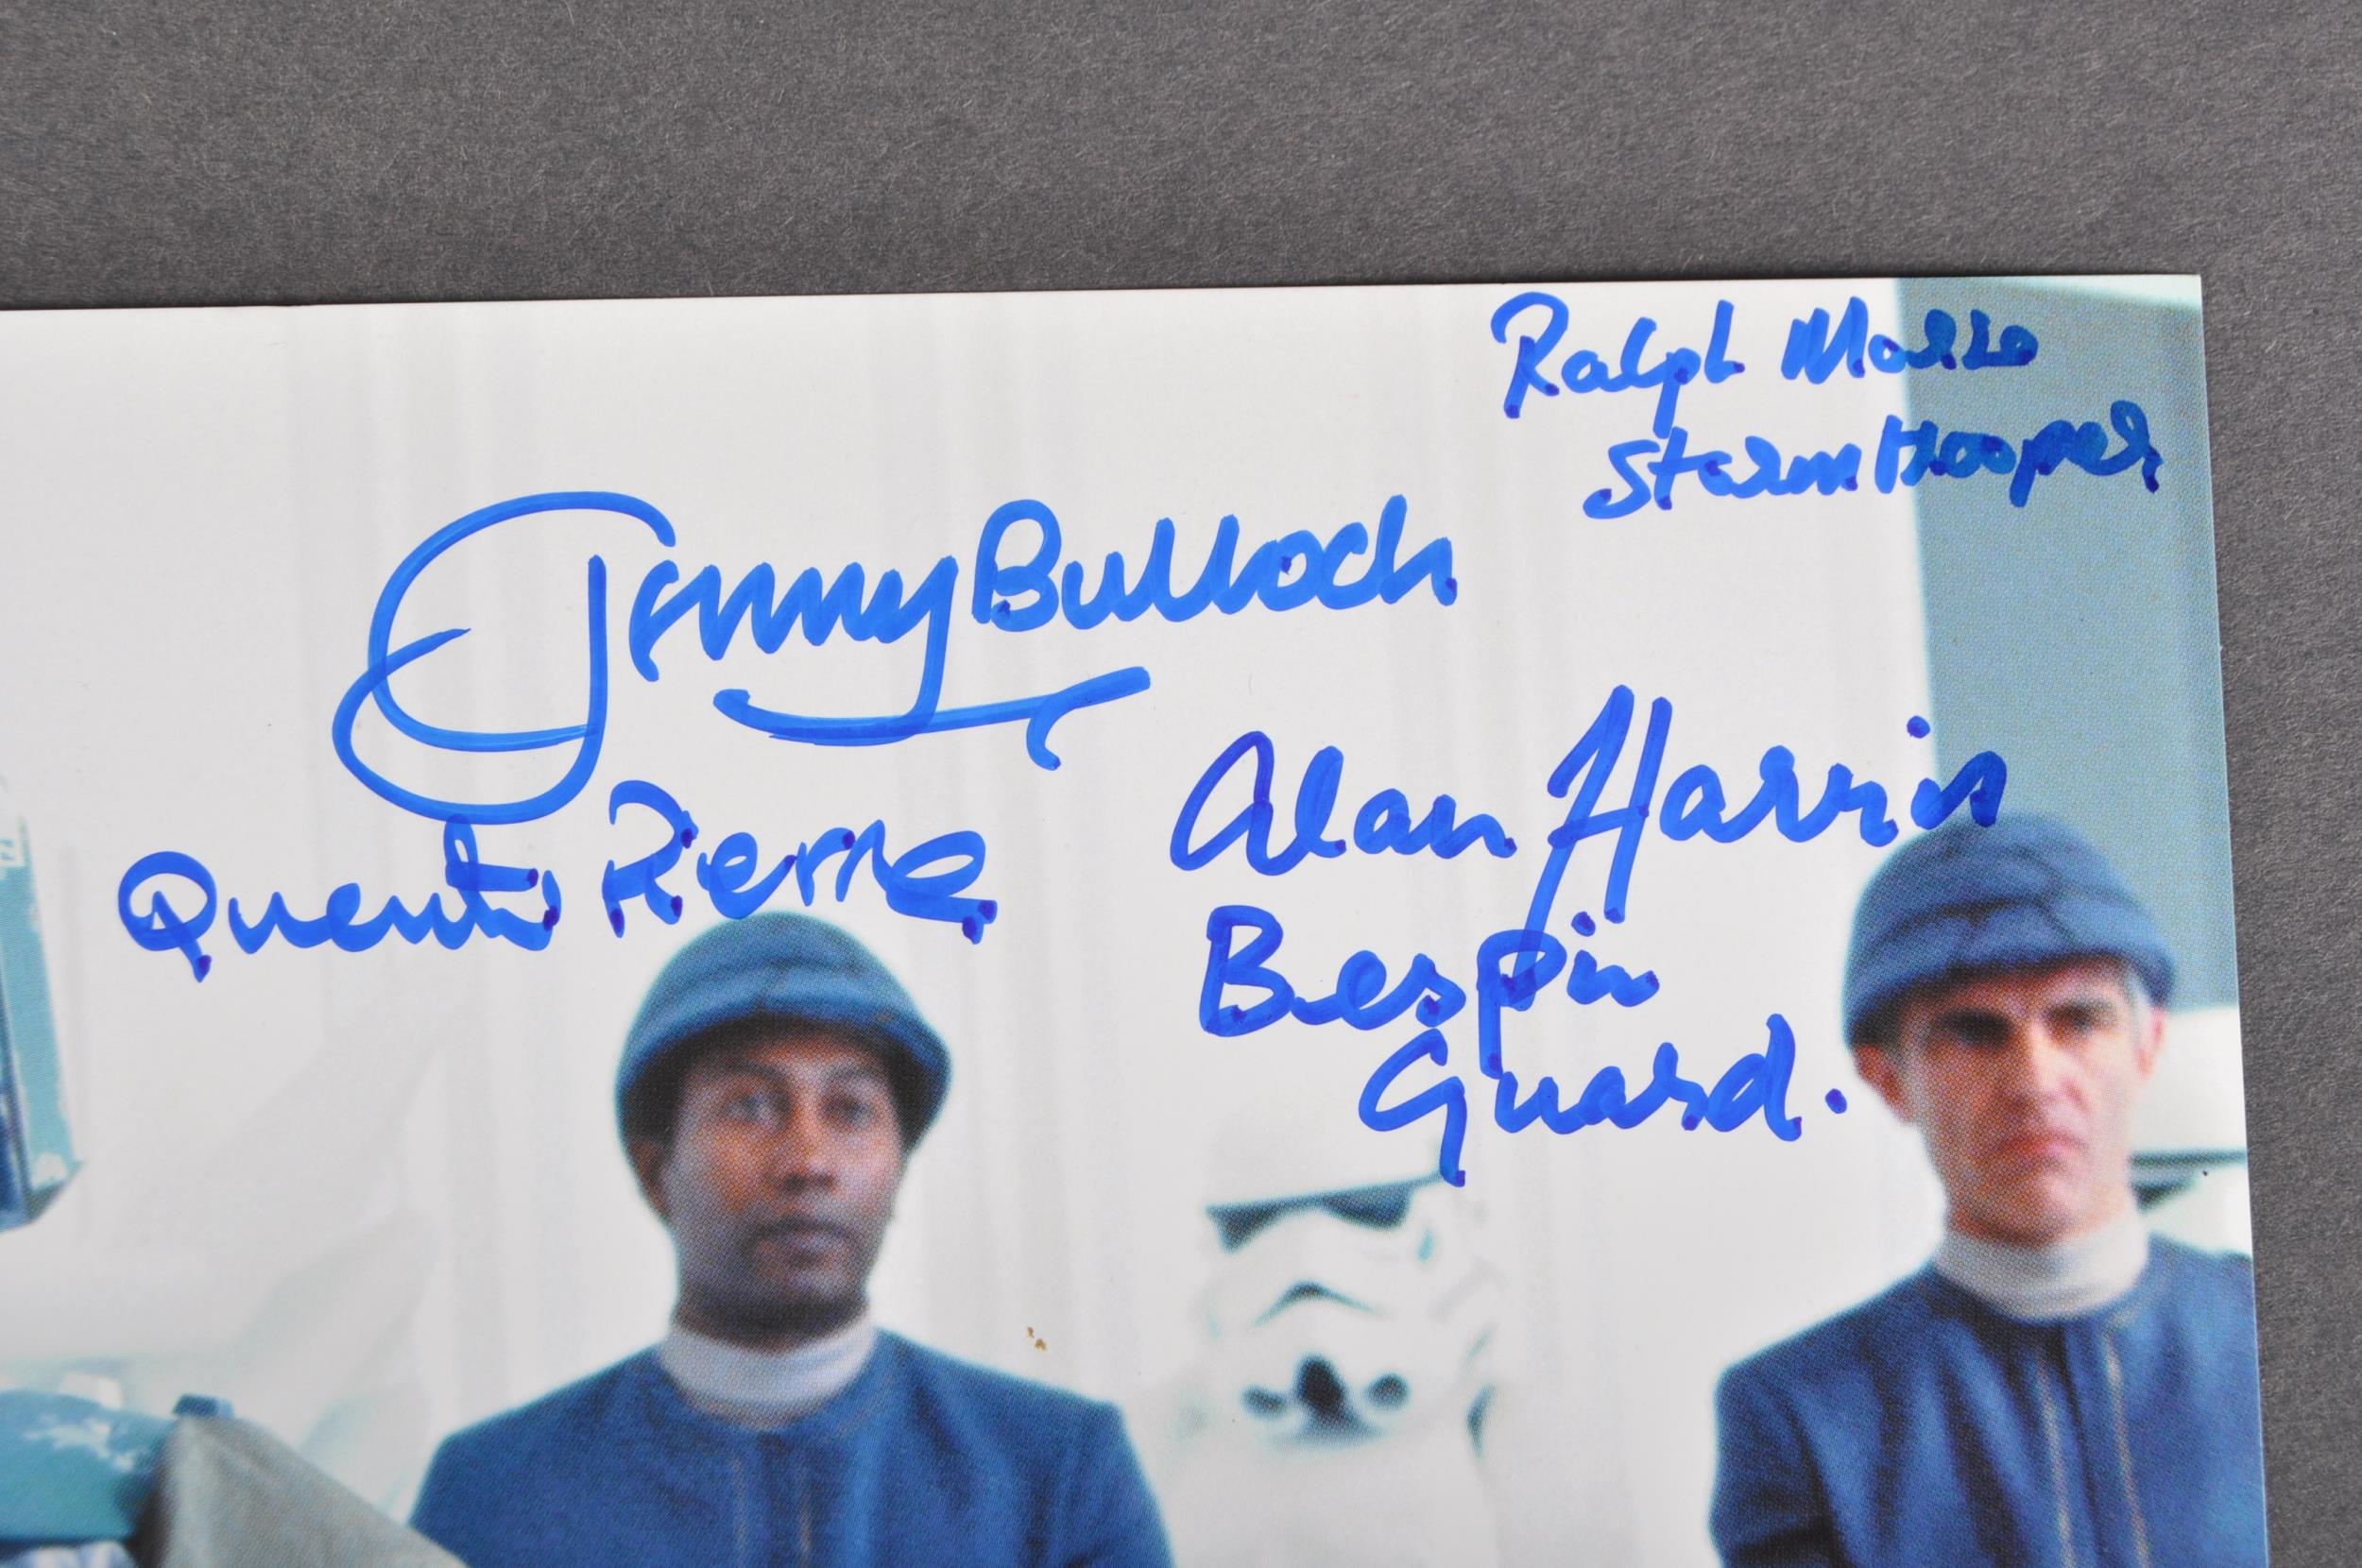 Ralph Morse
Stormtrooper
Jeremy Bulloch
Quentin Pierre
Alan Harris
Bespin
Guard.